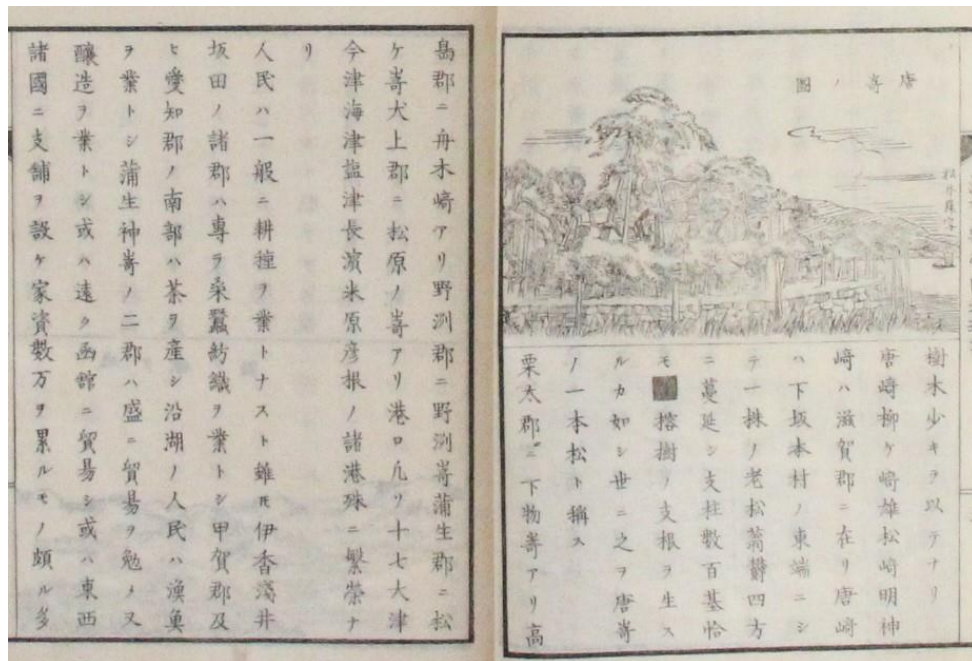 唐嵜ノ圖
樹木少キヲ以テナリ
唐崎柳ケ崎雄松崎明神
崎ハ滋賀郡ニ在リ唐崎
ハ下坂本村ノ東端ニシ
テ一株ノ老松蓊欝四方
ニ蔓延シ支柱数百基恰
モ榕樹ノ支根ヲ生ス
ルカ如シ世ニ之ヲ唐嵜
ノ一本松ト稱ス
栗太郡ニ下物嵜アリ高
島郡ニ舟木崎アリ野洲郡ニ野洲嵜蒲生郡ニ松
ケ嵜犬上郡ニ松原ノ嵜アリ港口凡ソ十七大津
今津海津塩津長濱米原彦根ノ諸港殊ニ繁榮ナ
リ
人民ハ一般ニ耕種ヲ業トナスト雖𪜈伊香淺井
坂田ノ諸郡ハ專ラ桒蠶紡織ヲ業トシ甲賀郡及
ヒ愛知郡ノ南部ハ茶ヲ産シ沿湖ノ人民ハ漁奠
ヲ業トシ蒲生神嵜ノ二郡ハ盛ニ貿昜ヲ勉メ又
釀造ヲ業トシ或ハ遠ク函館ニ貿昜シ或ハ東西
諸國ニ支舗ヲ設ケ家資數万ヲ累ルモノ頗ル多